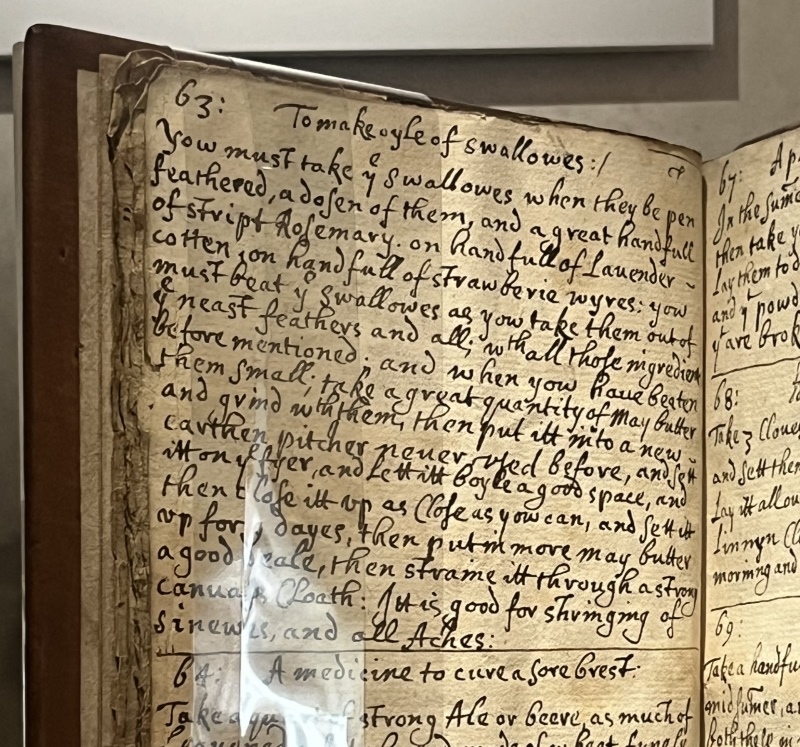 63: To make oyle of swallowes:/
You must take yͤ Swallowes when they be pen
feathered, a dosen of them, and a great handfull
of stript Rosemary. on handfull of Lauender
cotten, on handfull of strawberie wyres: you
must beat yͤ Swallowes as you take them out of
yͤ neast feathers and all; wth all those ingredien
before mentioned. and when you haue beaten
them small; take a great quantity of May butter
and grind wth them, then put itt into a new
earthen pitcher neuer vsed before, and sett
itt on yͤ fyer, and Lett itt boyle a good space, and
then Close itt vp as Close as you can, and sett itt
vp for dayes, then put in more may butter
a good deale, then straine itt through a strong
canuas Cloath: Itt is good for shringing of
sinewes, and all Aches:
64: A medicine to cure a sore brest:
Take a quart of strong Ale or beere, as much of
67:
In the
then take
Lay them to
and yͭ powd
yͭ are brok
68:
Take 3 Cloue
and sett them
Lay itt allou
Linnyn Cl
morning and
69:
Take a handfu
midsumer, a
both help in